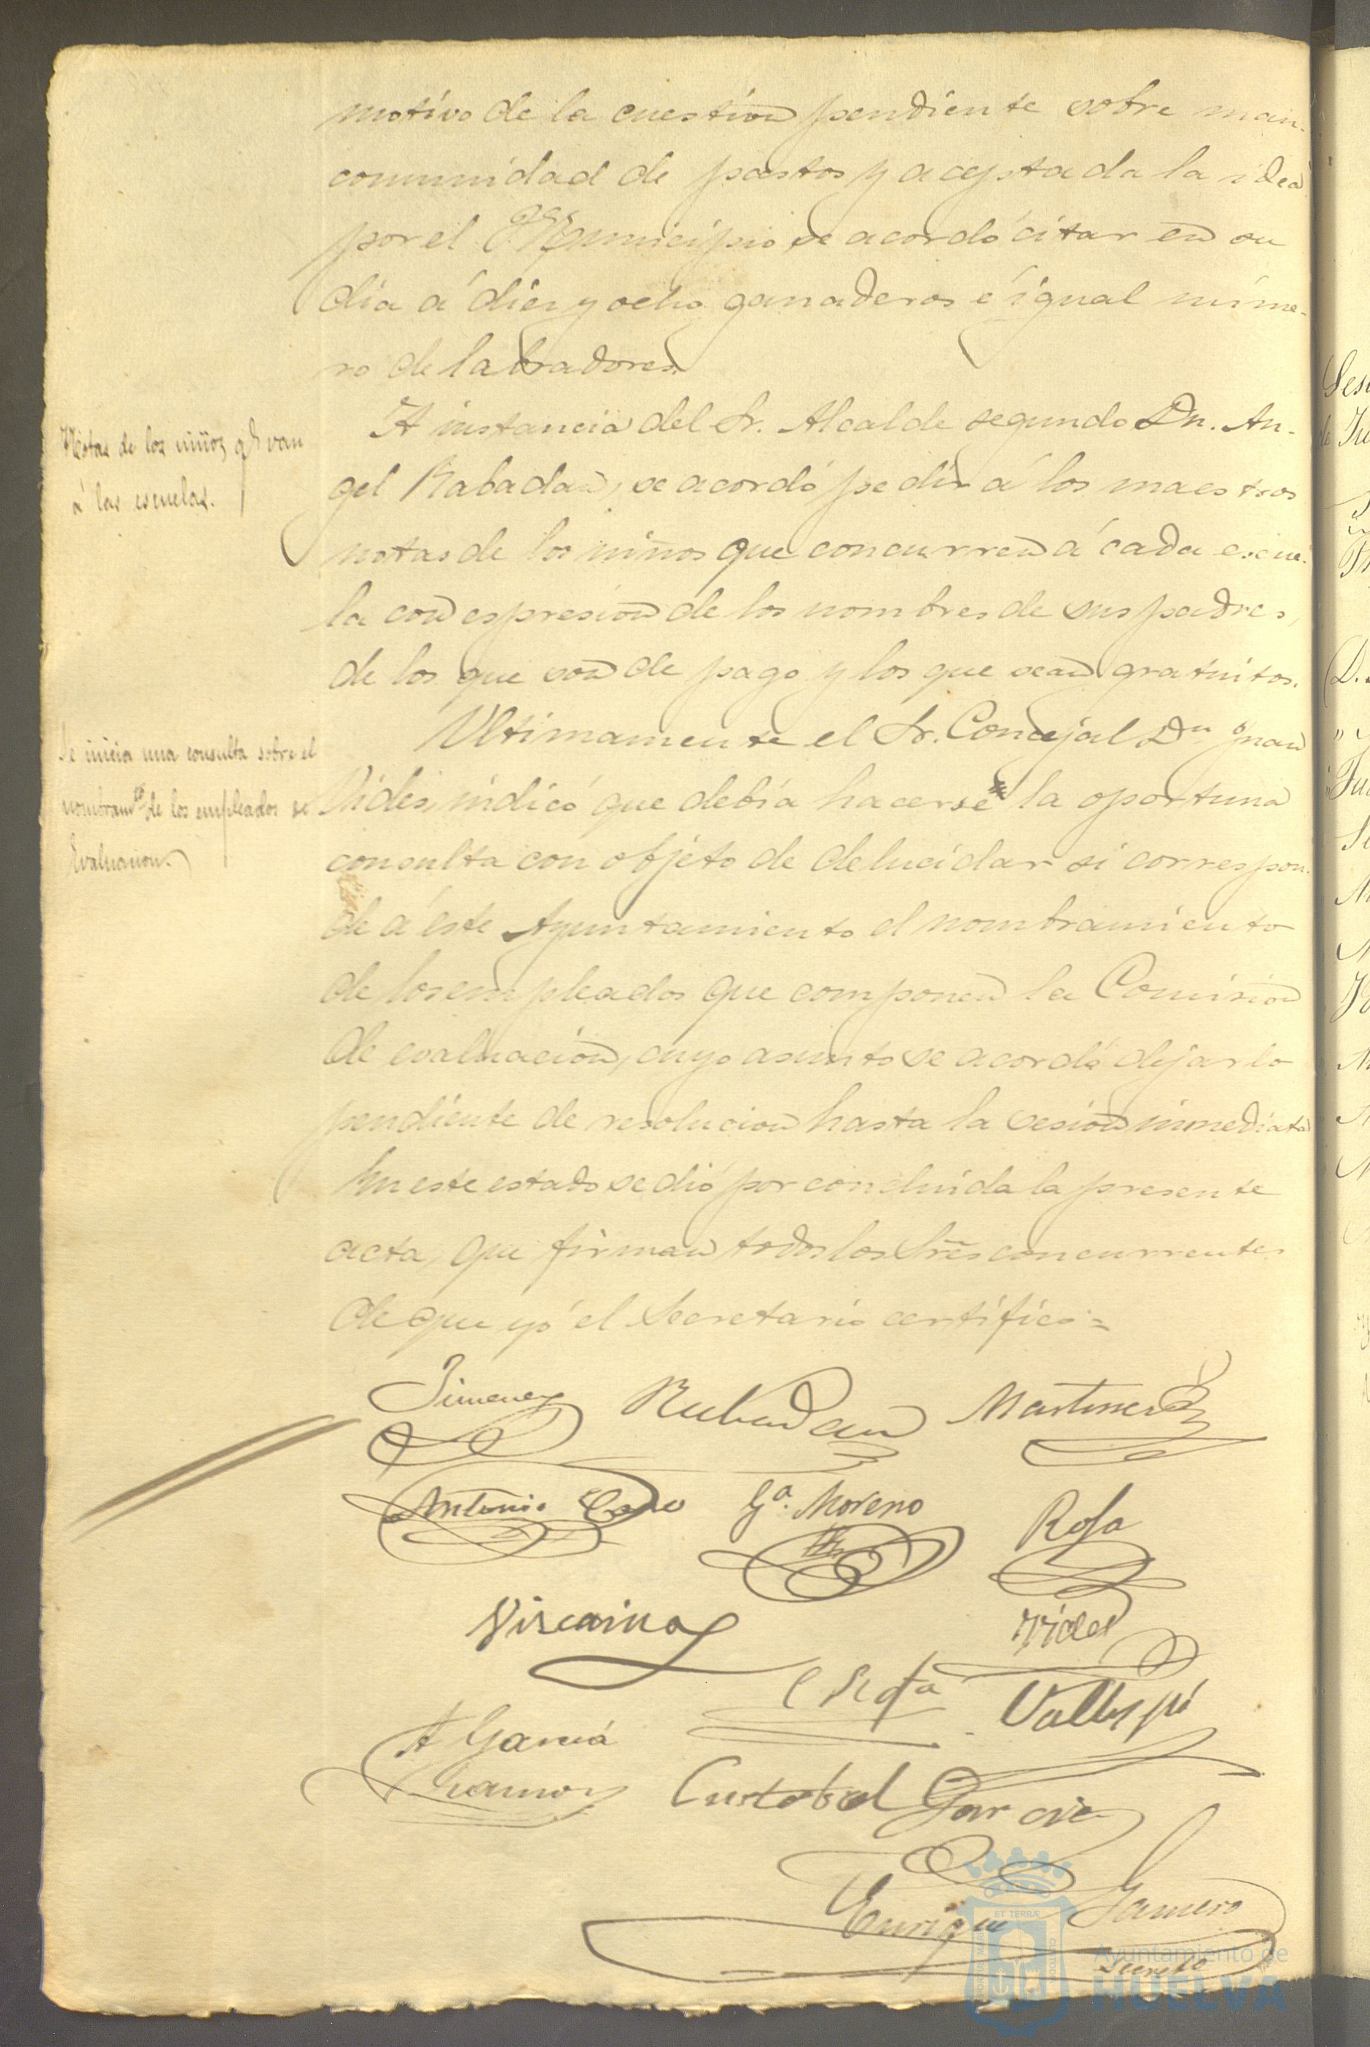 motivo de la cuestion pendiente sobre man-
comunidad de pastos y aceptada la idea
por el Municipio, se acordó citar en su
dia á diez y ocho ganaderos é igual núme-
ro de labradores.
Notas de los niños qe van
á las escuelas.
A instancia del Sr. Alcalde segundo Dn. An-
gel Rabadan, se acordó pedir á los maestros
notas de los niños que concurren á cada escue-
la con espresion de los nombres de sus padres,
de los que son de pago y los que sean gratuitos.
Se inicia una consulta sobre el
nombramto de los empleados de
Evaluacion.
Ultimamente el Sr. Concejal Dn Juan
Vides, indicó que debía hacerse la oportuna
consulta con objeto de delucidar si correspon-
de á éste Ayuntamiento el nombramiento
de los empleados que componen la Comision
de evaluación, cuyo asunto se acordó dejarlo
pendiente de resolucion hasta la sesion inmediata
En este estado se dió por concluida la presente
acta, que firman todos los Sres concurrentes
de que yó el Secretario certifico=
Jimenez Rabadan Martinez
Antonio Cano Ga. Moreno Rofa
Viscaino Vides
Rofa Vallespí
A Garcia
Ramos Cristobal Garcia
Enrique
Secreto
Ayuntamiento de
HUELVA